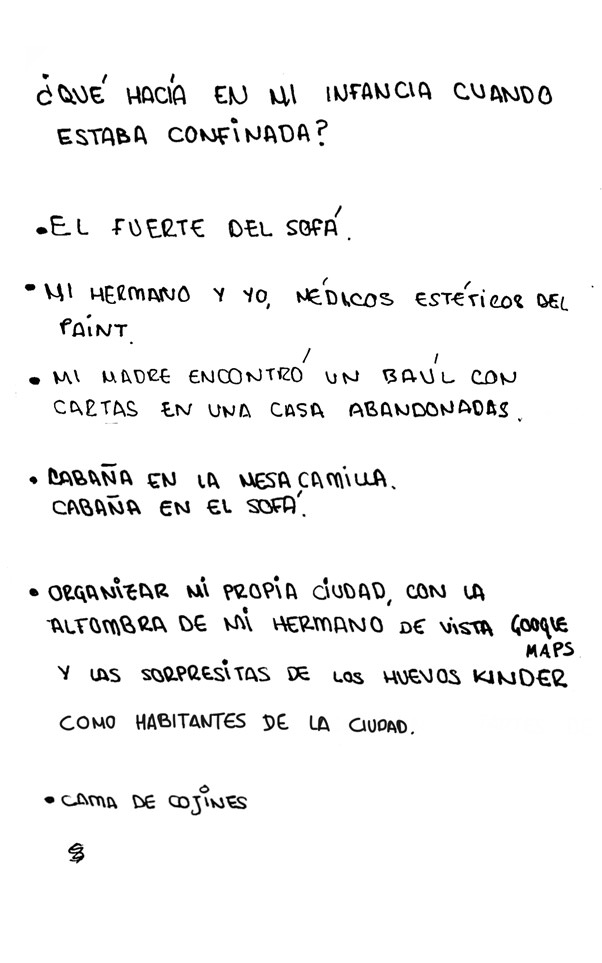 ¿QUÉ HACÍA EN MI INFANCIA CUANDO
ESTABA CONFINADA?
• EL FUERTE DEL SOFÁ.
• MI HERMANO Y YO, MÉDICOS ESTÉTICOS DEL
PAINT.
• MI MADRE ENCONTRÓ UN BAÚL CON
CARTAS EN UNA CASA ABANDONADAS.
• CABAÑA EN LA MESA CAMILLA.
CABAÑA EN EL SOFÁ.
• ORGANIZAR MI PROPIA CIUDAD, CON LA
ALFOMBRA DE MI HERMANO DE VISTA GOOGLE
MAPS
Y LAS SORPRESITAS DE LOS HUEVOS KINDER
COMO HABITANTES DE LA CIUDAD.
• CAMA DE COJINES